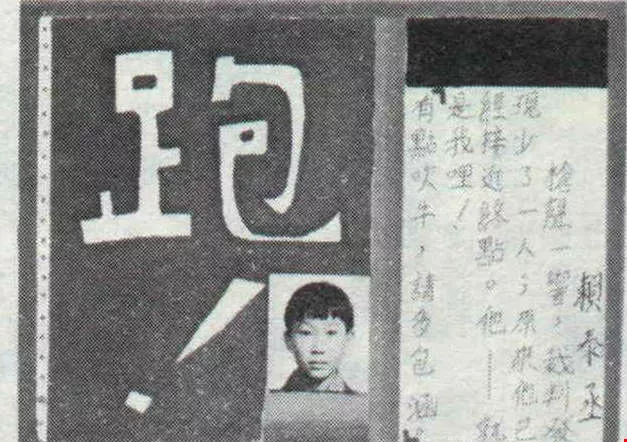 跑！
賴泰丞
槍聲一響，裁判發
現少了一人，原來他已
經接近終點。他——就
是我哩！
有點吹牛，請多包涵。